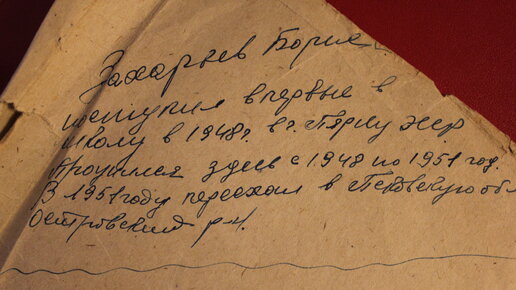 Захарьев Борис
поступил впервые в
школу в 1948г. в г. Пярну ЭССР
Проучился здесь с 1948 по 1951 год.
В 1951 году переехал в Псковскую обл
Островский р-н.